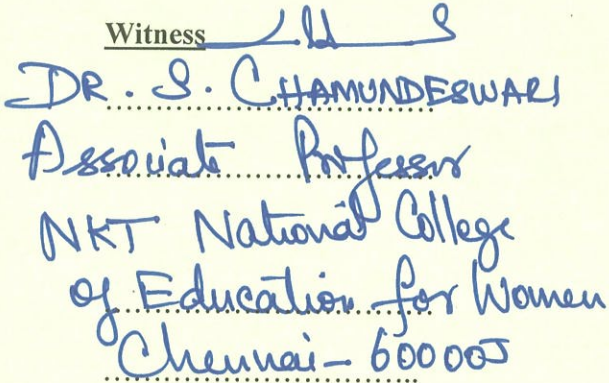 Witness
DR. S. CHAMUNDESWARI
Associate Professor
NKT National College
of Education for Women
Chennai - 600005